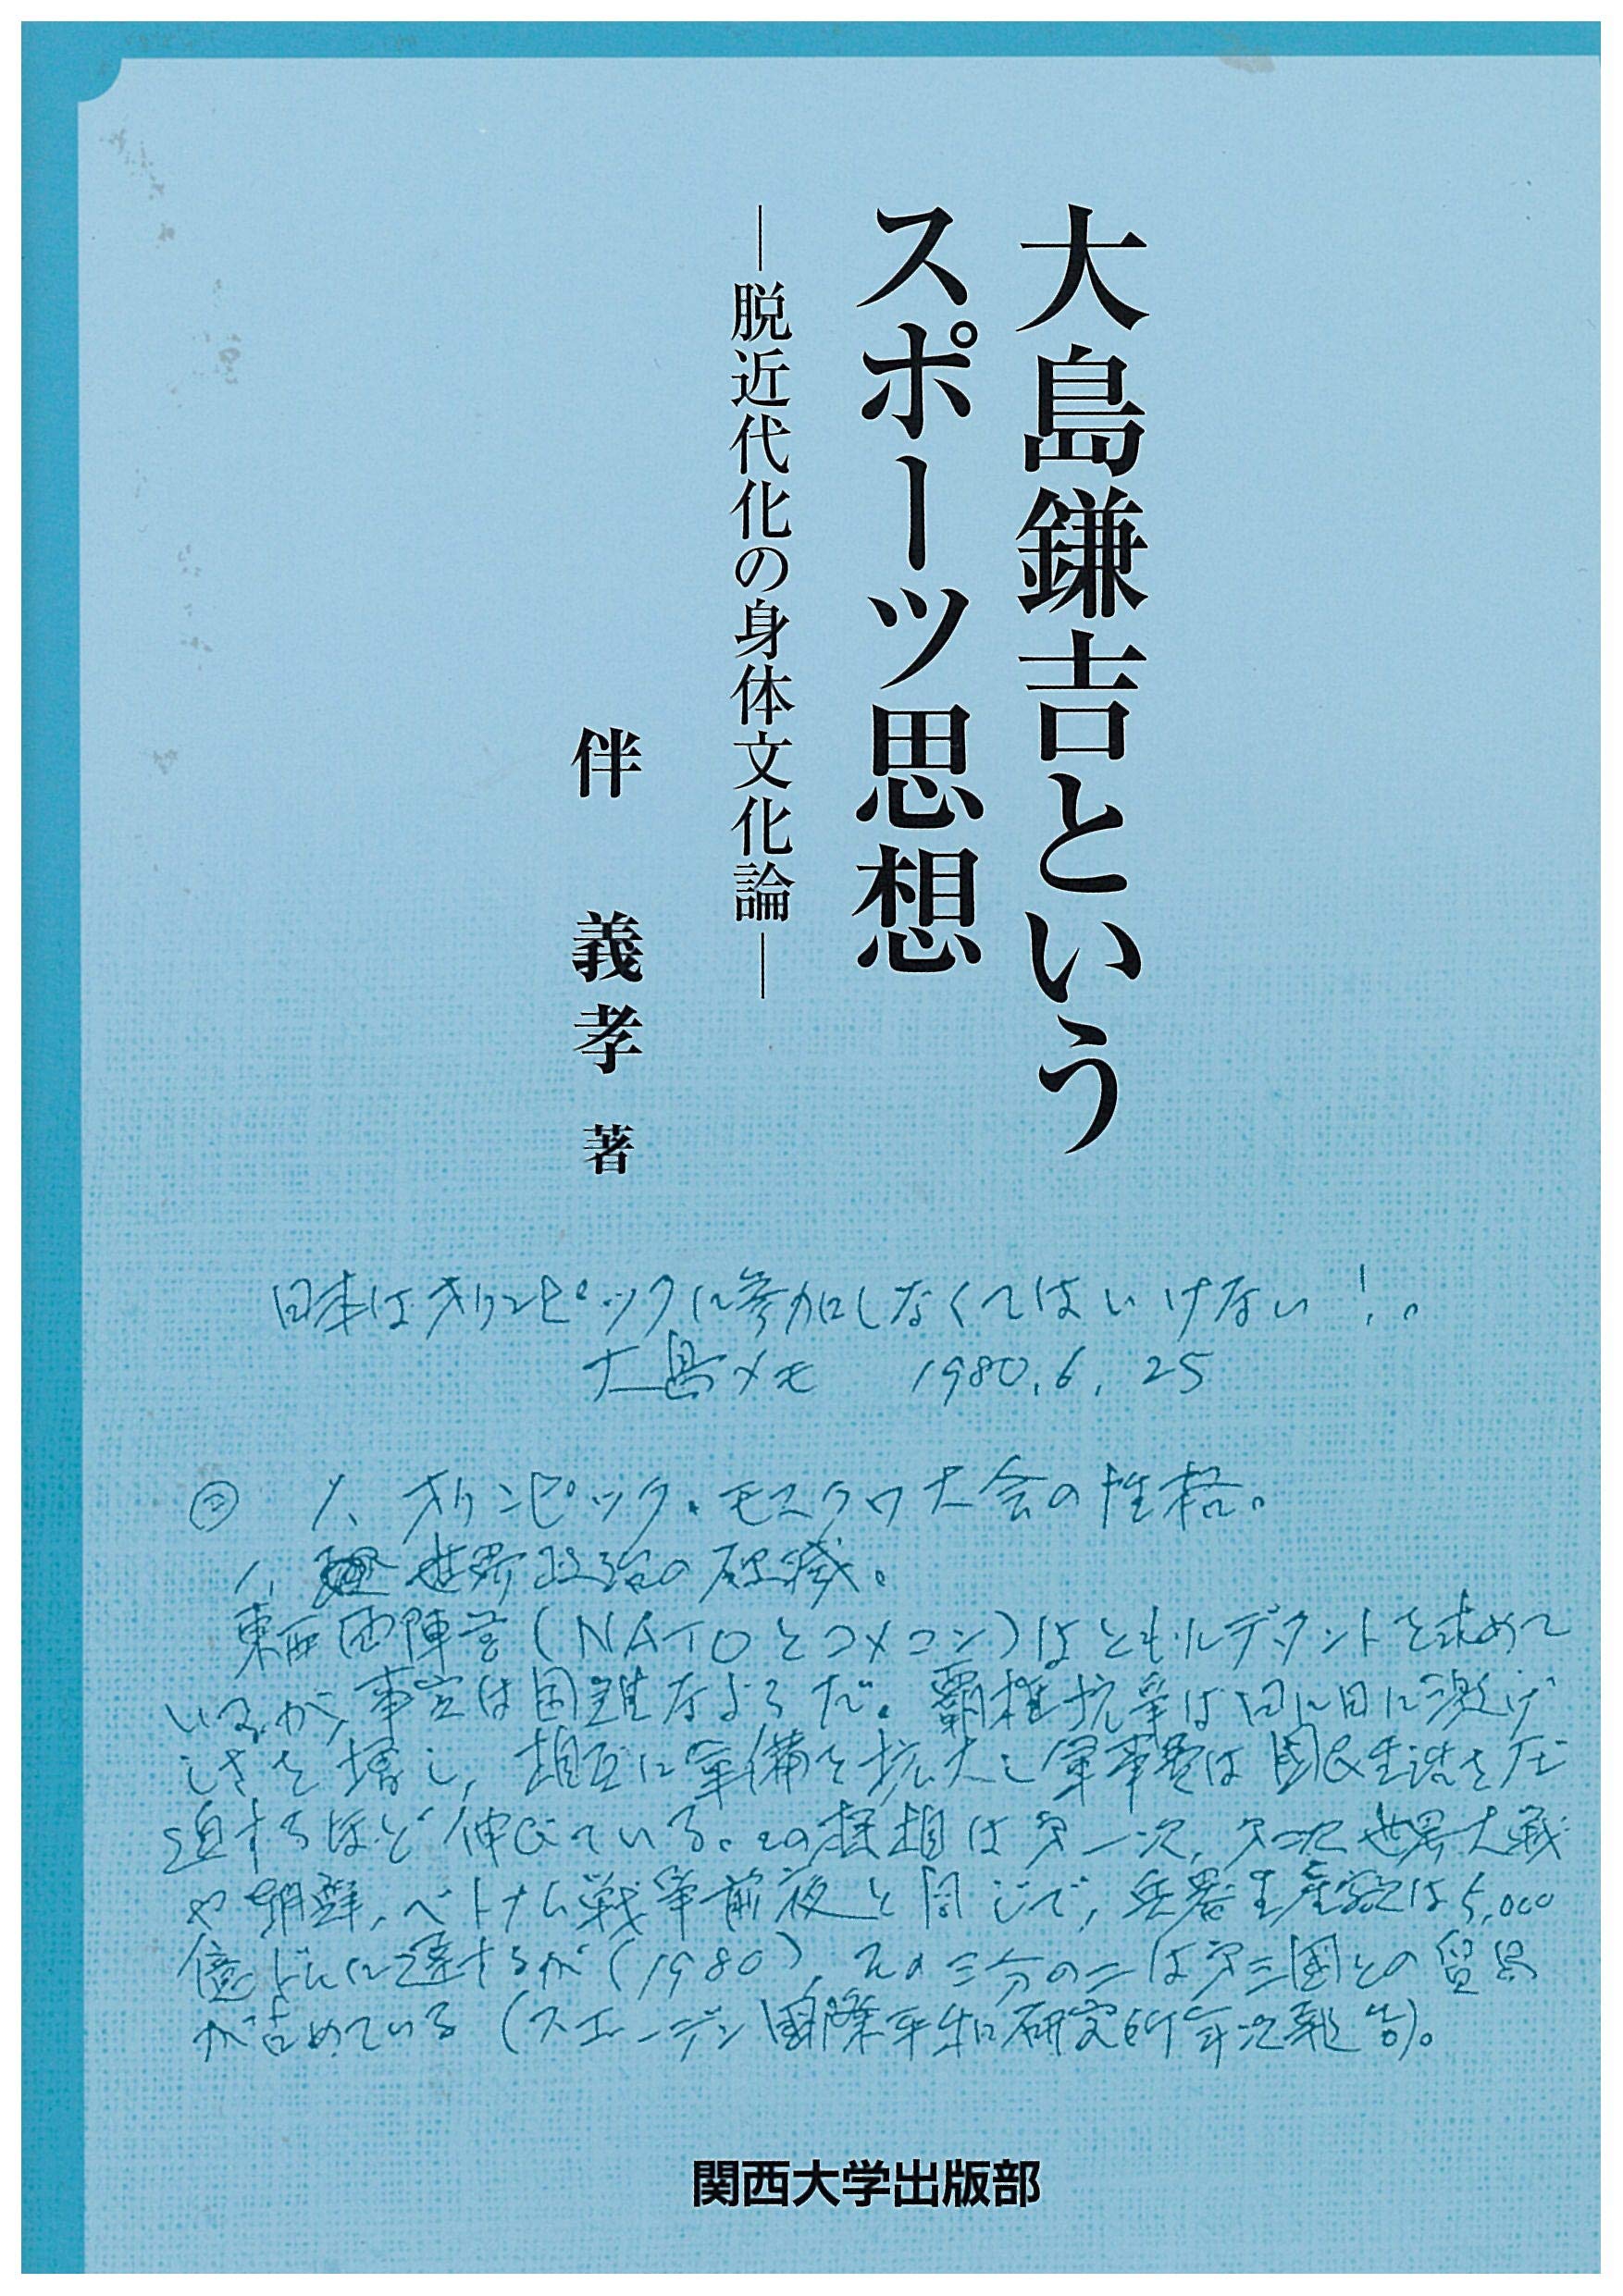 大島鎌吉という
スポーツ思想
―脱近代化の身体文化論―
伴 義孝 著
日本はオリンピックに参加しなくてはいけない!。
大島メモ 1980.6.25
オリンピック・モスクワ大会の性格。
1、世界政治の破滅。
東西両陣営(NATOとコメコン)はともにデタントを求めて
いるが、事実は困難なようだ。覇権抗争は日に日に激げ
しさを増し、相互に軍備を拡大し軍事費は国民生活を圧
迫するほど伸びている。この様相は第一次、第二次世界大戦
や朝鮮、ベトナム戦争前夜と同じで、兵器生産額は5,000
億ドルに達するが(1980)、その三分の二は第三国との貿易
が占めている(スエーデン国際平和研究所年次報告)。
関西大学出版部